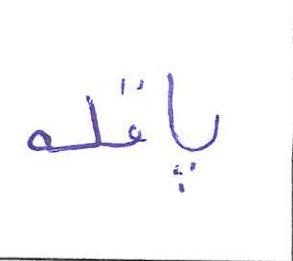 پاقله